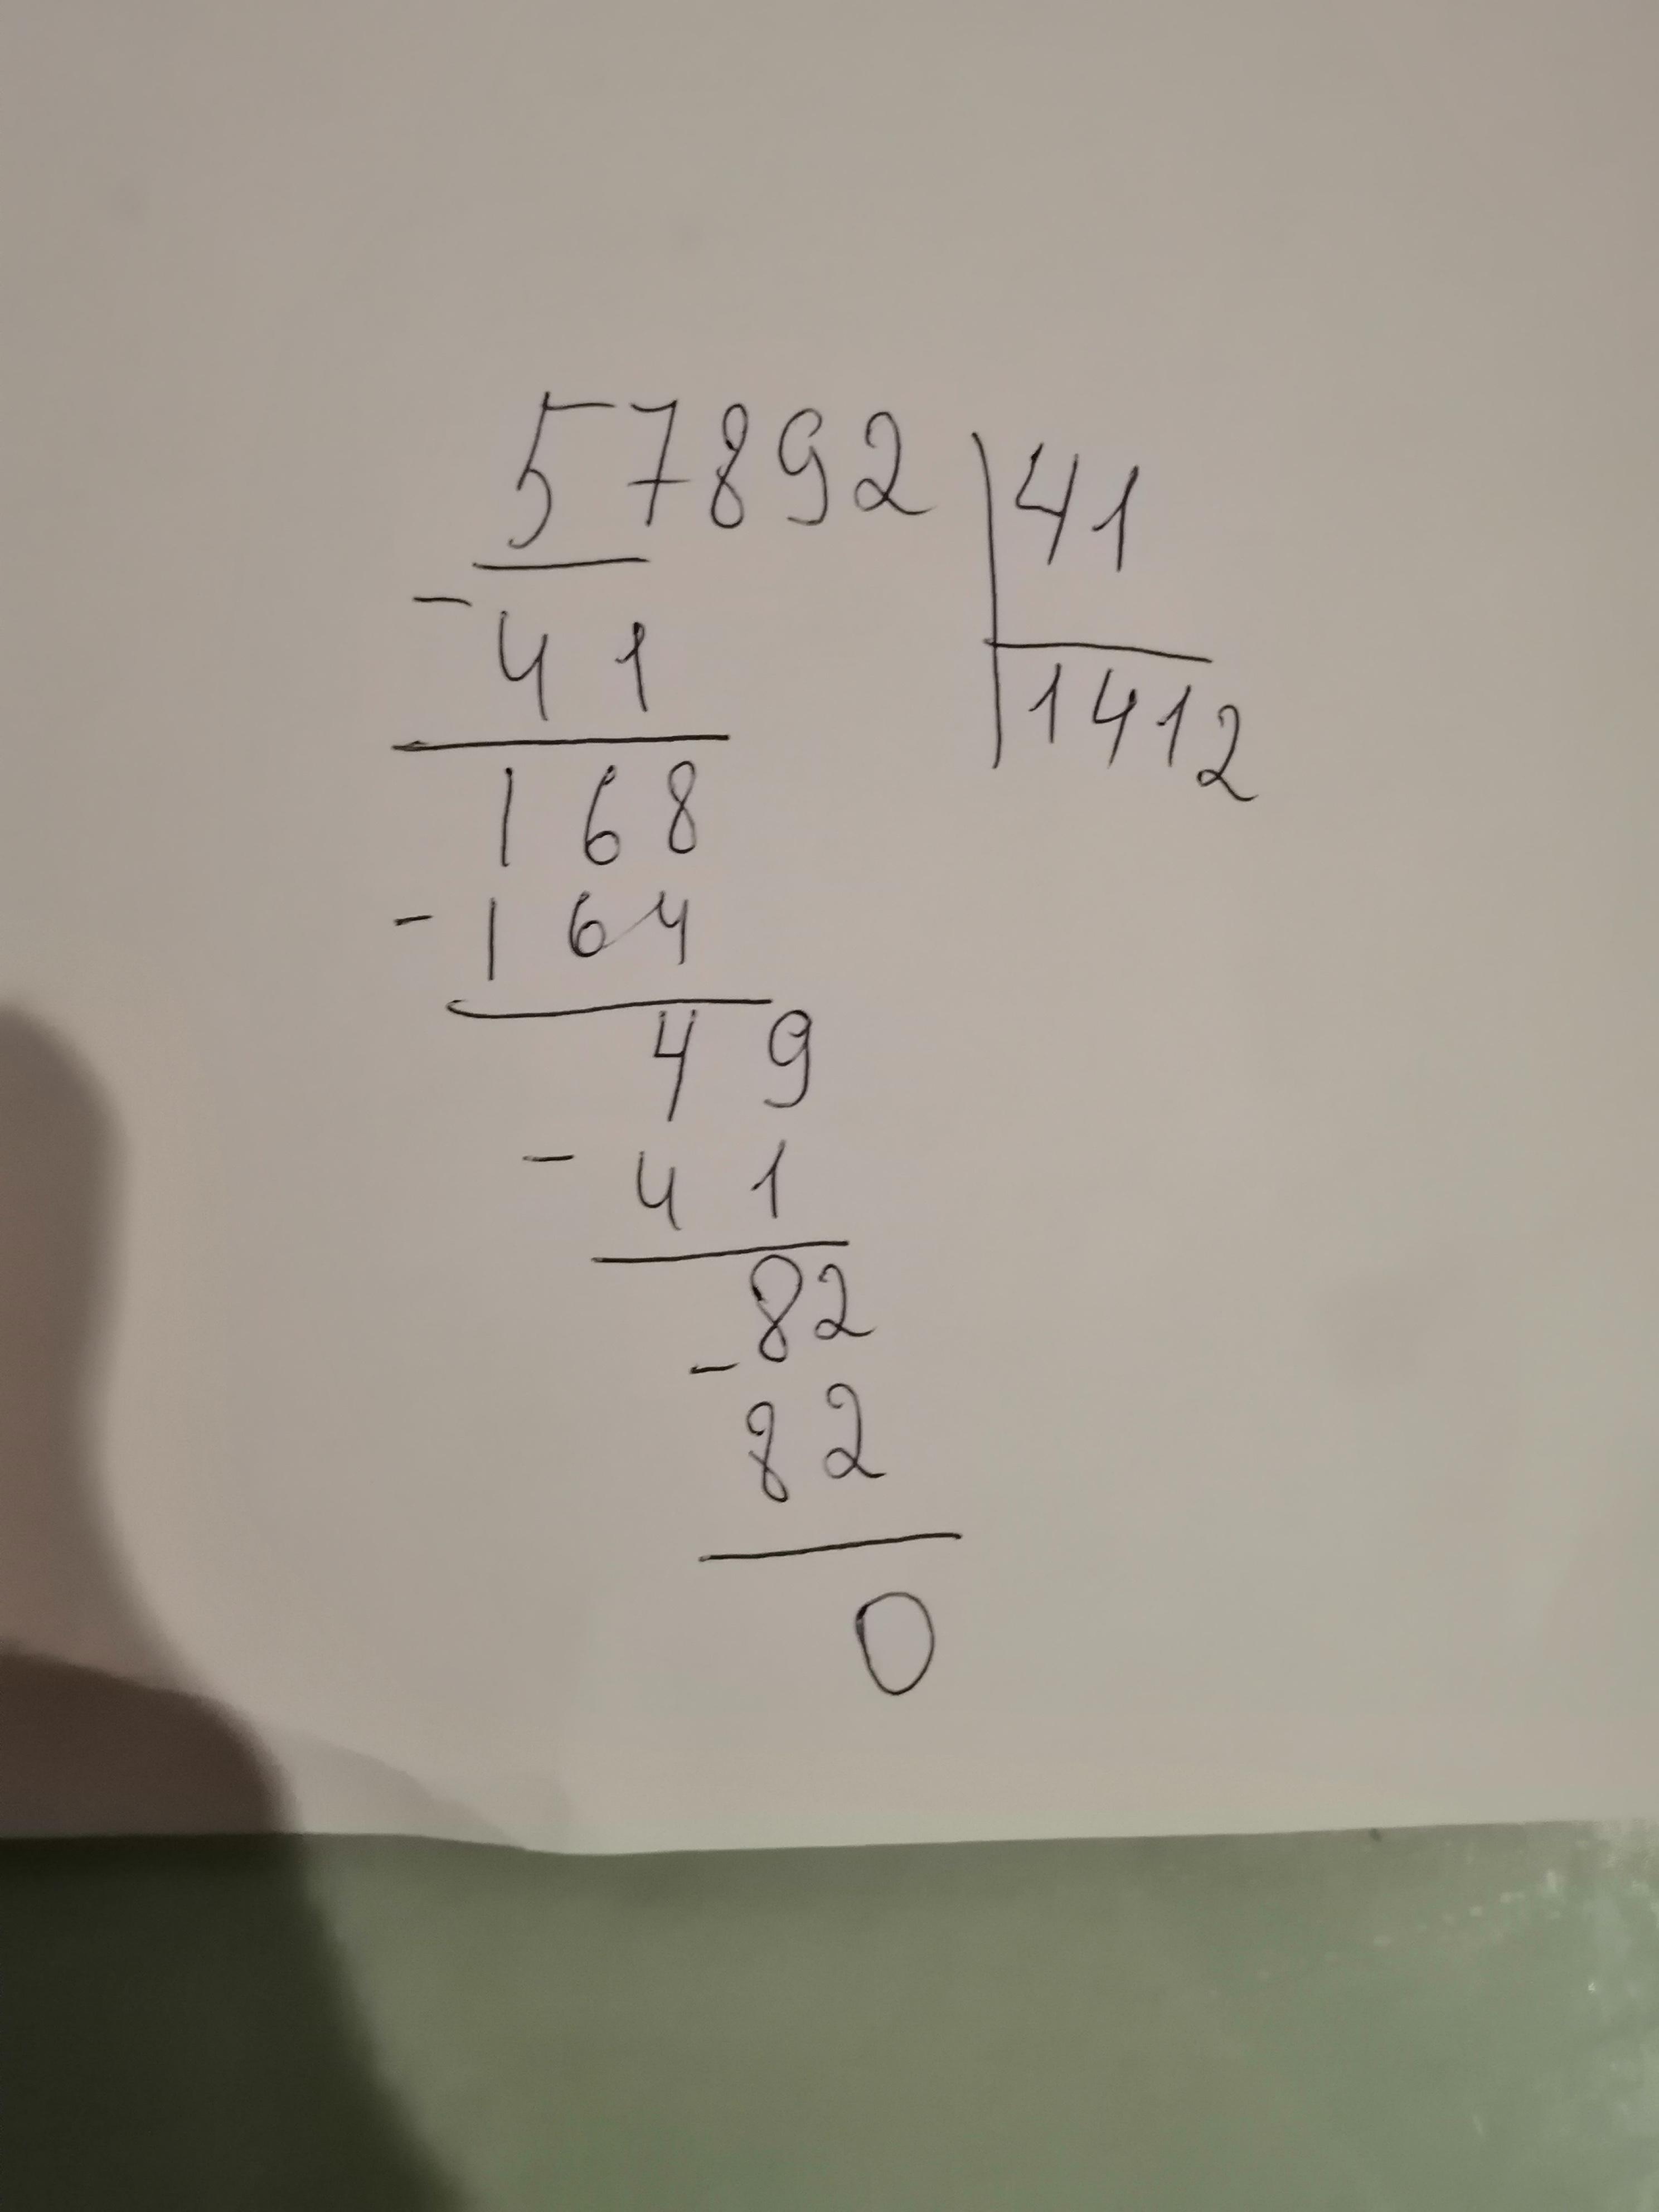 57892 41
- 41 1412
168
- 164
49
- 41
82
- 82
0